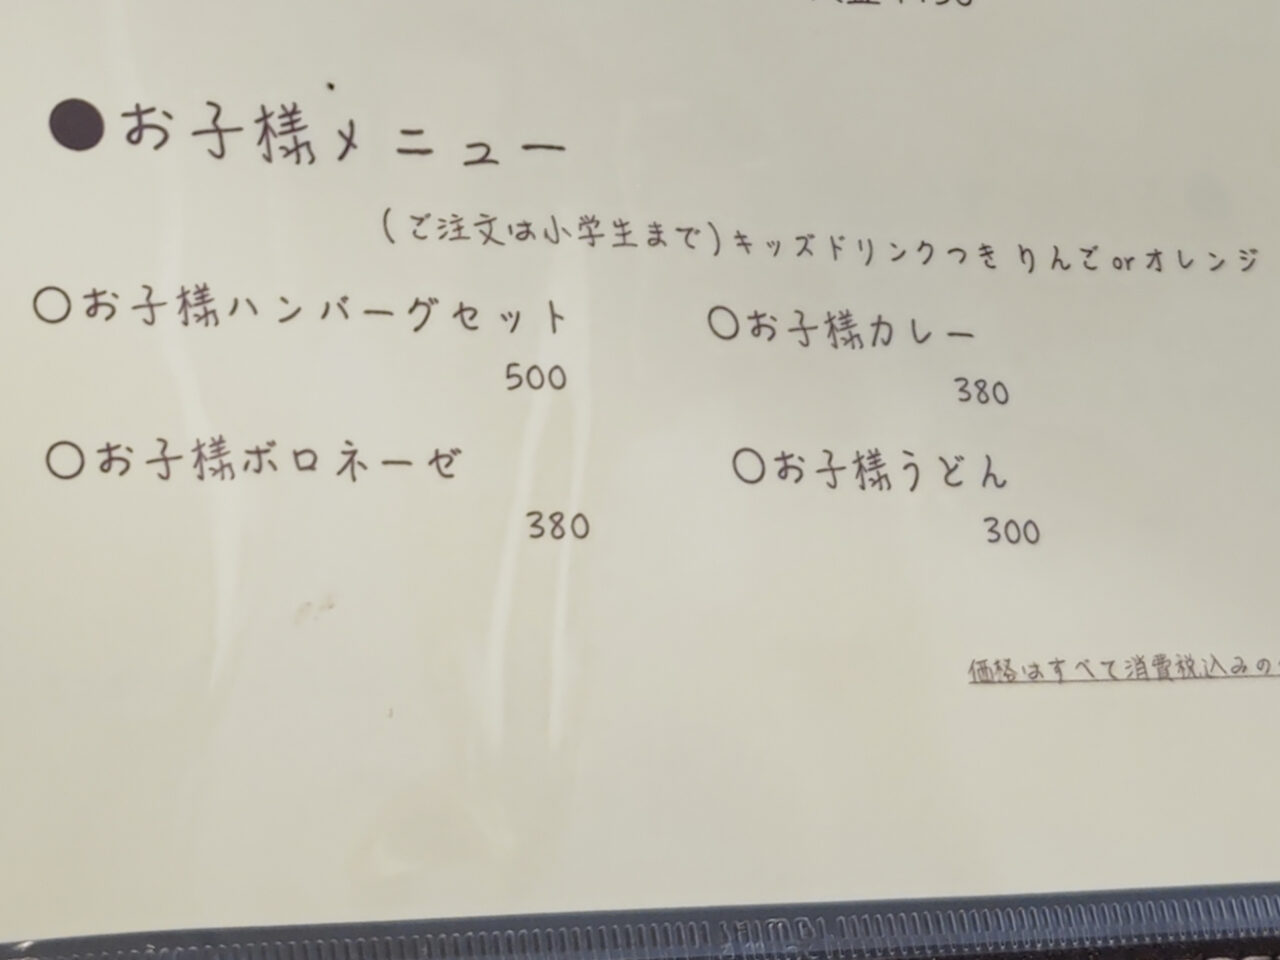 ●お子様メニュー
(ご注文は小学生まで)キッズドリンクつき りんごorオレンジ
○お子様ハンバーグセット
500
○お子様カレー
380
○お子様ボロネーゼ
380
○お子様うどん
300
価格はすべて消費税込みの